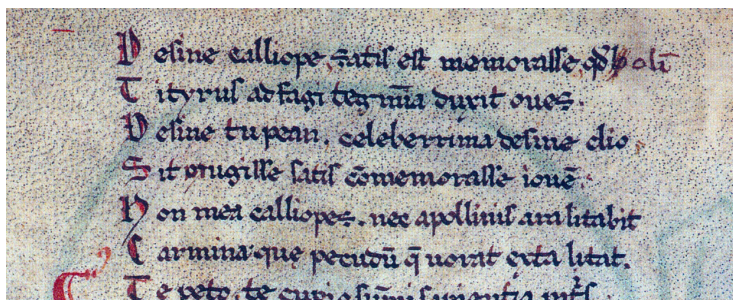 Desine calliope satis est memorasse qđ oli̅
Tityrus ad fagi tegmi̅a duxit oues.
Desine tu pean. celeberrima desine clio
Sit pugisse satis co̅memorasse ioue̅.
Non mea calliopes. nec apollinis ara litabit
Carmina que pecudu̅ q̅ uorat exta litat.
Te peto. te